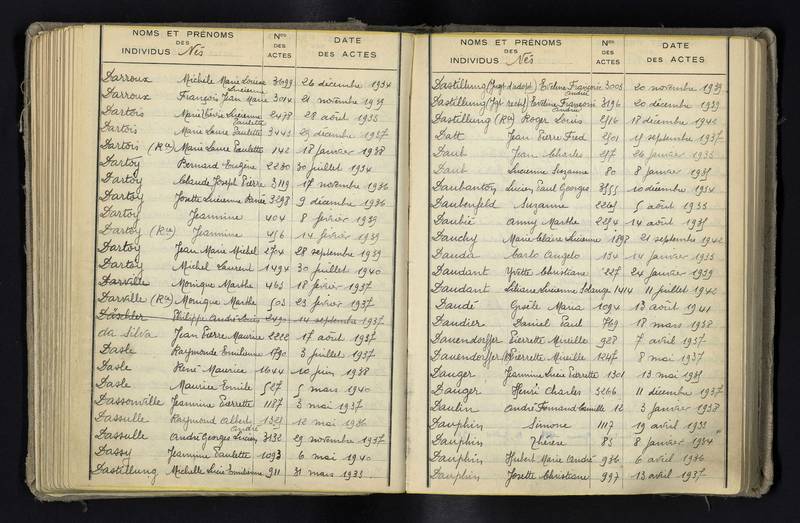 NOMS ET PRÉNOMS
DES
INDIVIDUS Nés
Nos
DES
ACTES
DATE
DES ACTES
Darroux Michèle Marie Louise 3699 26 décembre 1934
Darroux François Jean Marie Lucienne 3014 21 novembre 1939
Dartois Marie Lucienne 2478 28 août 1935
Dartois Marie Laure Paulette 3443 29 décembre 1937
Dartois (Ron) Marie Laure Paulette 142 18 janvier 1938
Dartoy Bernard Eugène 2230 30 juillet 1934
Dartoy Claude Joseph Pierre 3119 17 novembre 1936
Dartoy Josette Lucienne Renée 3298 9 décembre 1936
Dartoy Jeannine 404 8 février 1939
Dartoy (Ron) Jeannine 456 14 février 1939
Dartoy Jean Marie Michel 2704 28 septembre 1939
Dartoy Michel Laurent 1494 30 juillet 1940
Darville Monique Marthe 463 18 février 1937
Darville (Ron) Monique Marthe 503 23 février 1937
Philippe André Louis 2490 14 septembre 1937
da Silva Jean Pierre Maurice 2222 17 août 1937
Dasle Raymonde Emilienne 1790 3 juillet 1937
Dasle René Maurice 1644 10 juin 1938
Dasle Maurice Emile 527 5 mars 1940
Dassonville Jeannine Pierrette 1187 3 mai 1937
Dassulle Raymond Albert 1321 12 mai 1936
Dassulle André Georges Lucien André 3132 29 novembre 1937
Dassy Jeannine Paulette 1093 6 mai 1940
Dastillung Michelle Lucie Emilienne 911 31 mars 1933
NOMS ET PRÉNOMS
DES
INDIVIDUS Nés
Nos
DES
ACTES
DATE
DES ACTES
Dastillung (Jugt d'adopt) Eveline Françoise 3005 20 novembre 1939
Dastillung (Jgt rectif) Eveline Françoise 3196 20 décembre 1939
Dastillung (Ron) Roger Louis André 2516 18 décembre 1942
Datt Jean Pierre Fred 2501 15 septembre 1937
Daub Jean Charles 257 26 janvier 1935
Daub Lucienne Suzanne 80 8 janvier 1935
Daubanton Lucien Paul Georges 3555 10 décembre 1934
Daubenfeld Suzanne 2265 5 août 1933
Daubié Anny Marthe 2254 14 août 1935
Dauchy Marie Claire Lucienne 1898 21 septembre 1942
Dauda Carlo Angelo 134 14 janvier 1933
Daudant Yvette Christiane 227 24 janvier 1939
Daudant Liliane Lucienne Solange 1414 11 juillet 1942
Daudé Gisèle Maria 1094 13 août 1941
Daudier Daniel Paul 769 18 mars 1938
Dauendorffer Pierrette Mireille 928 7 avril 1937
Dauendorffer Pierrette Mireille 1247 8 mai 1937
Dauger Jeannine Lucie Pierrette 1301 13 mai 1935
Dauger Henri Charles 3266 11 décembre 1937
Daulin André Fernand Camille 12 3 janvier 1938
Dauphin Simone 1117 19 avril 1933
Dauphin Thérèse 83 8 janvier 1934
Dauphin Hubert Marie André 986 6 avril 1936
Dauphin Josette Christiane 997 13 avril 1937